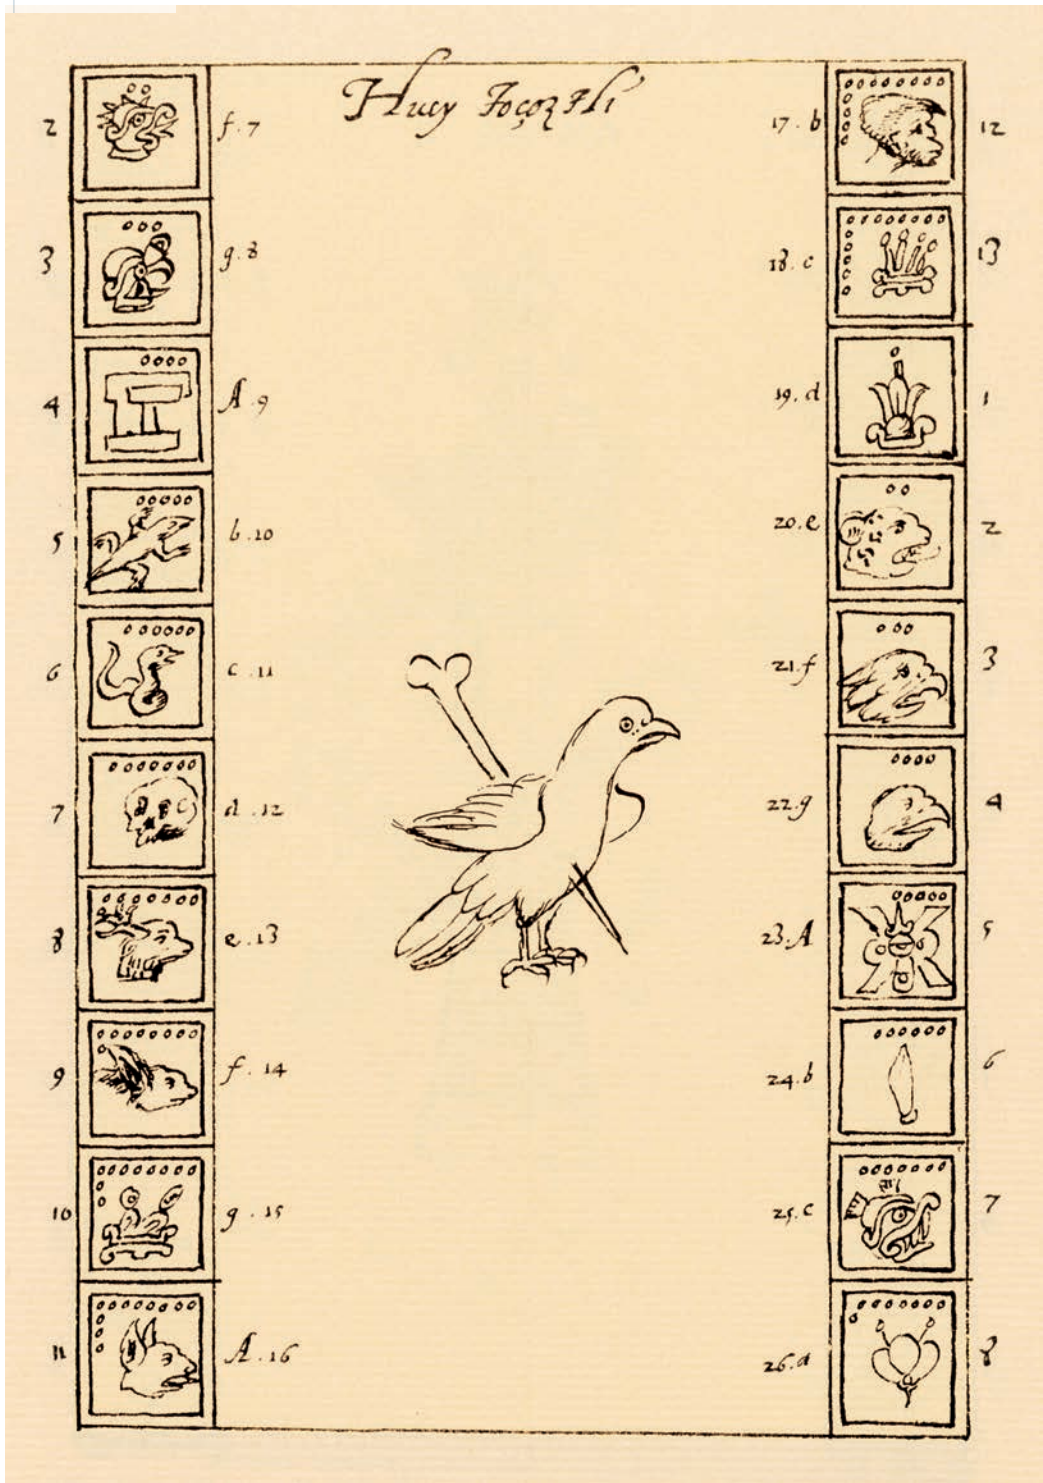 Huey Toçoztli
2 f.7
3 g.8
4 A.9
5 b.10
6 c.11
7 d.12
8 e.13
9 f.14
10 g.15
11 A.16
17.b 12
18.c 13
19.d 1
20.e 2
21.f 3
22.g 4
23.A 5
24.b 6
25.c 7
26.d 8